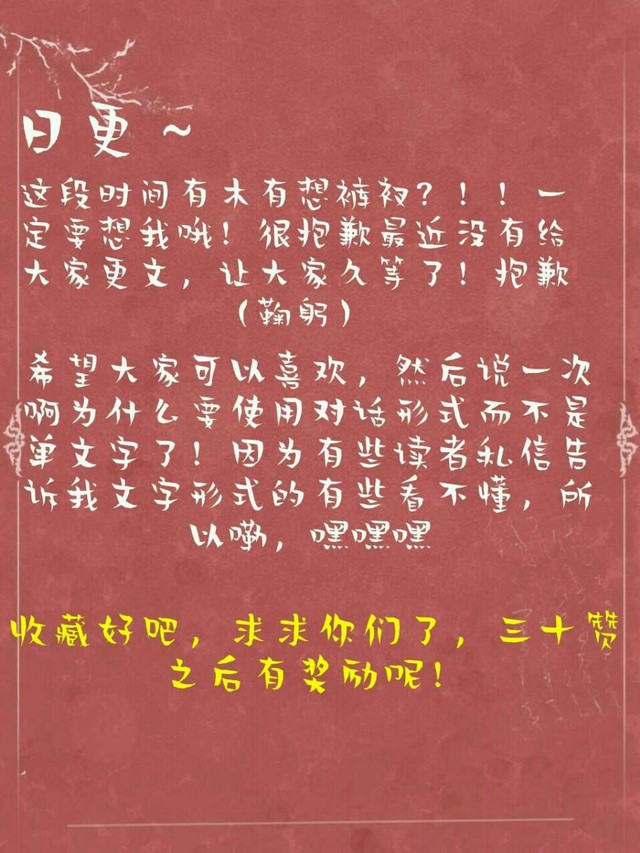 日更~
这段时间有木有想裤衩？！！一
定要想我哦！很抱歉最近没有给
大家更文，让大家久等了！抱歉
（鞠躬）
希望大家可以喜欢，然后说一次
啊为什么要使用对话形式而不是
单文字了！因为有些读者私信告
诉我文字形式的有些看不懂，所
以嘞，嘿嘿嘿
收藏好吧，求求你们了，三十赞
之后有奖励呢！